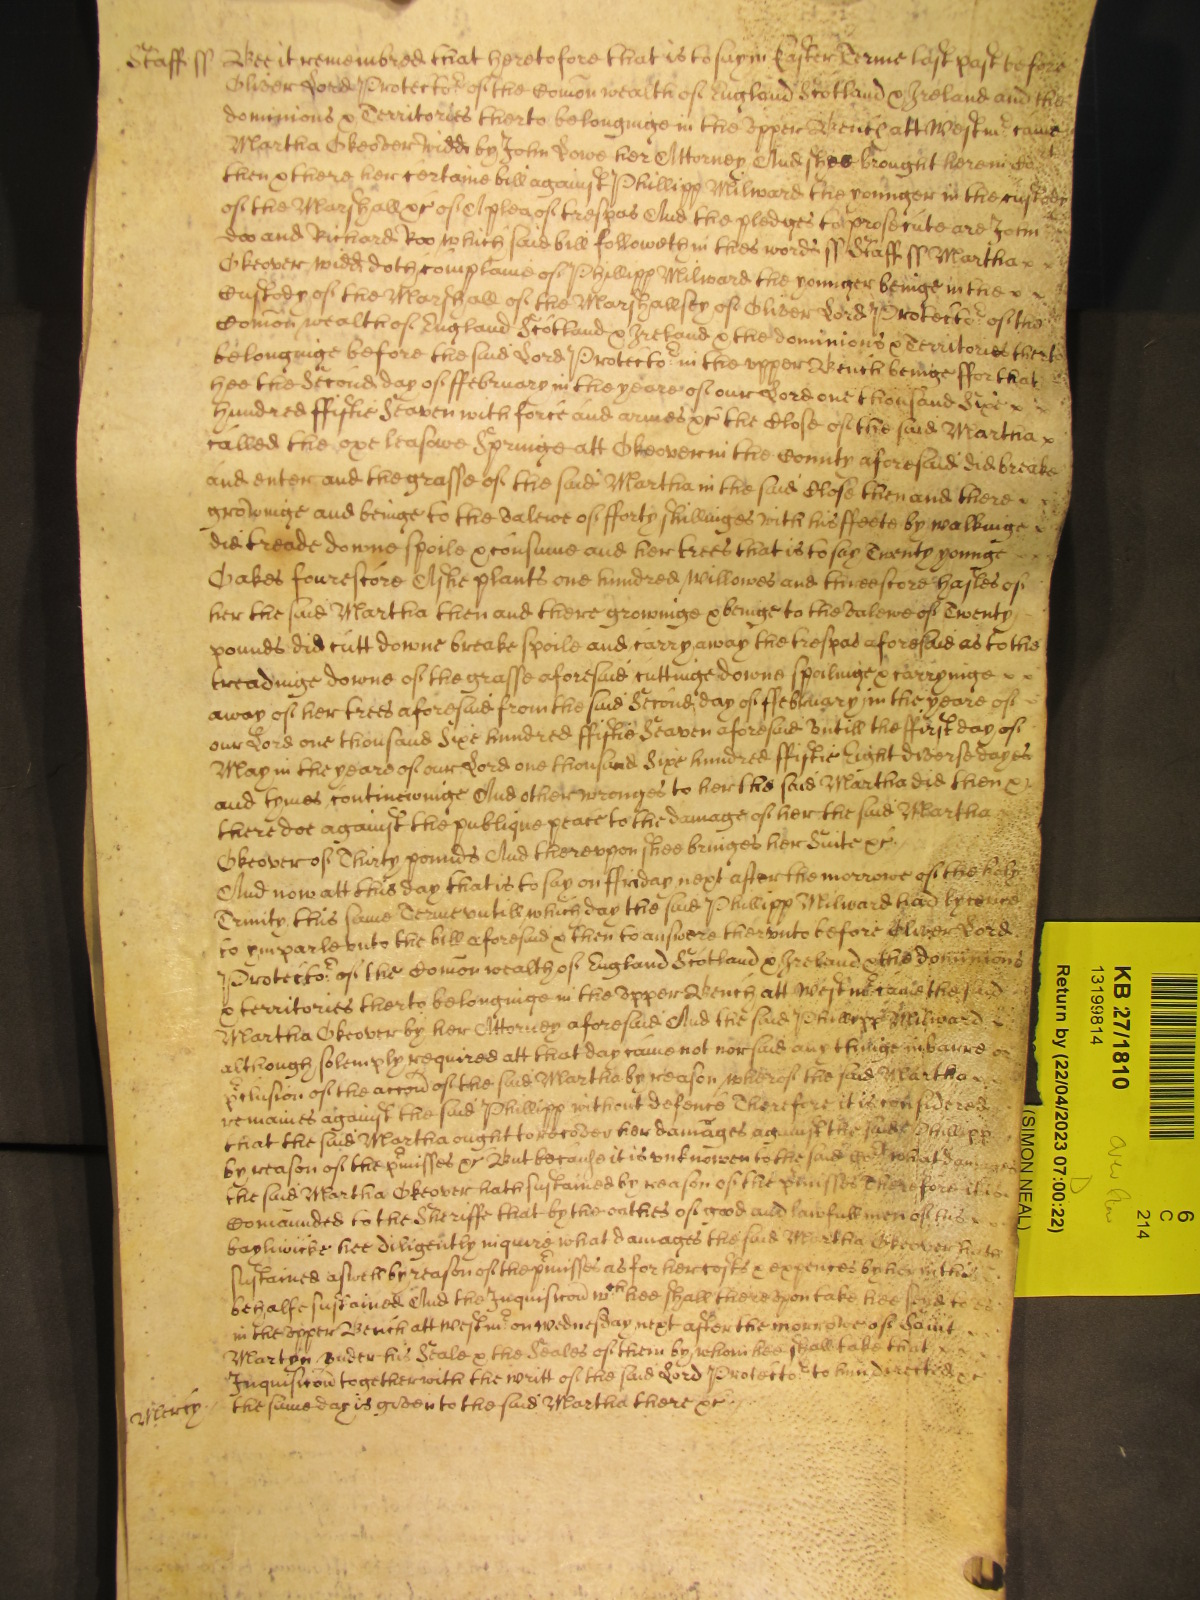 Staff ss Bee it remembred that heretofore that is to say in Easter Terme last past before
Oliver Lord Protector of the Comon wealth of England Scotland & Ireland and the
dominions & Territories therto belonginge in the upper Bench att Westmr came
Martha Okeover widd by John Lowe her Attorney And shee brought here in
then & there her certaine bill against Phillipp Milward the younger in the custody
of the Marshall &c of A plea of trespas And the pledges to prosecute are John
Doo and Richard Roo which said bill followeth in thes words ss Staff ss Martha
Okeover widd doth complaine of Phillipp Milward the younger beinge in the
Custody of the Marshall of the Marshallsey of Oliver Lord Protector of the
Comon wealth of England Scotland & Ireland & the dominions & Territories therto
belonginge before the said Lord Protector in the upper Bench beinge ffor that
hee the Second day of ffebruary in the yeare of our Lord one thousand Sixe
hundred ffiftie Seaven with force and armes &c the Close of the said Martha
called the oxe leasowe Springe att Okeover in the County aforesaid did breake
and enter and the grasse of the said Martha in the said Close then and there
growinge and beinge to the valewe of fforty shillinges with his ffeete by walkinge
did treade downe spoile & consume and her trees that is to say Twenty younge
Oakes fourescore Ashe plants one hundred willowes and threescore hasles of
her the said Martha then and there growinge & beinge to the valewe of Twenty
pounds did cutt downe breake spoile and carry away the trespas aforesaid as to the
treadinge downe of the grasse aforesaid cuttinge downe spoilinge & carryinge
away of her trees aforesaid from the said Second day of ffebruary in the yeare of
our Lord one thousand Sixe hundred ffiftie Seaven aforesaid Untill the ffirst day of
May in the yeare of our Lord one thousand Sixe hundred ffiftie Eight diverse dayes
and tymes continewinge And other wronges to her the said Martha did then &
there doe against the publique peace to the damage of her the said Martha
Okeover of Thirty pounds And thereupon shee bringes her Suite &c
And now att this day that is to say on ffriday next after the morrowe of the holy
Trinity this same Terme untill which day the said Phillipp Milward had lycence
to emparle unto the bill aforesaid & then to answere therunto before Oliver Lord
Protector of the Comon wealth of England Scotland & Ireland & the dominions
& territories therto belonginge in the upper Bench att Westmr came the said
Martha Okeover by her Attorney aforesaid And the said Phillipp Milward
although solemply required att that day came not nor said any thinge in barre or
pclusion of the accon of the said Martha by reason wherof the said Martha
remaines against the said Phillipp without defence Therefore it is considered
that the said Martha ought to recover her damages against the said Phillipp
by reason of the pmisses &c But because it is unknowen to the said Cort what damages
the said Martha Okeover hath sustained by reason of the pmisses Therefore it is
Comaunded to the Sheriffe that by the oathes of good and lawfull men of his
bayliwicke hee diligently inquire what damages the said Martha Okeover hath
sustained aswell by reason of the pmisses as for her costs & expences by her in this
behalfe sustained And the Inquisicon wch hee shall thereupon take hee send to
in the upper Bench att Westmr on wednesday next after the morrowe of Saint
Martyn under his Seale & the Seales of them by whom hee shall take that
Inquisicon together with the writt of the said Lord Protector to him directed &c
Mercy the same day is given to the said Martha there &c
KB 27/1810
13199814
Return by (22/04/2023 07:00:22)
(SIMON NEAL)
6
C
214
D